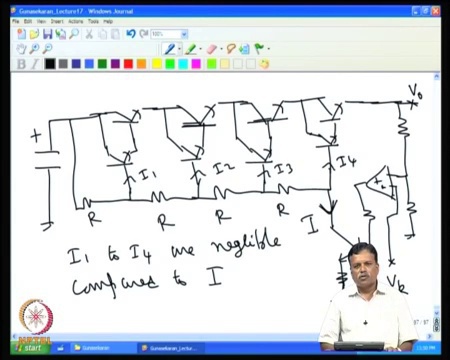 Gunasekaran_Lecture17 - Windows Journal
File Edit View Insert Actions Tools Help
100%
B I
V0
+
I1 I2 I3 I4
R R R R
I
VR
I1 to I4 are neglible
compared to I
97 / 97
NPTEL
start
Gunasekaran
Gunasekaran_Lectu...